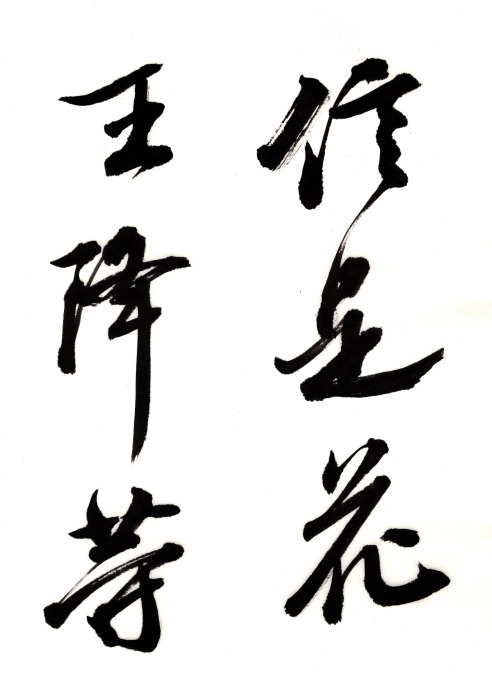 信是花
王降等